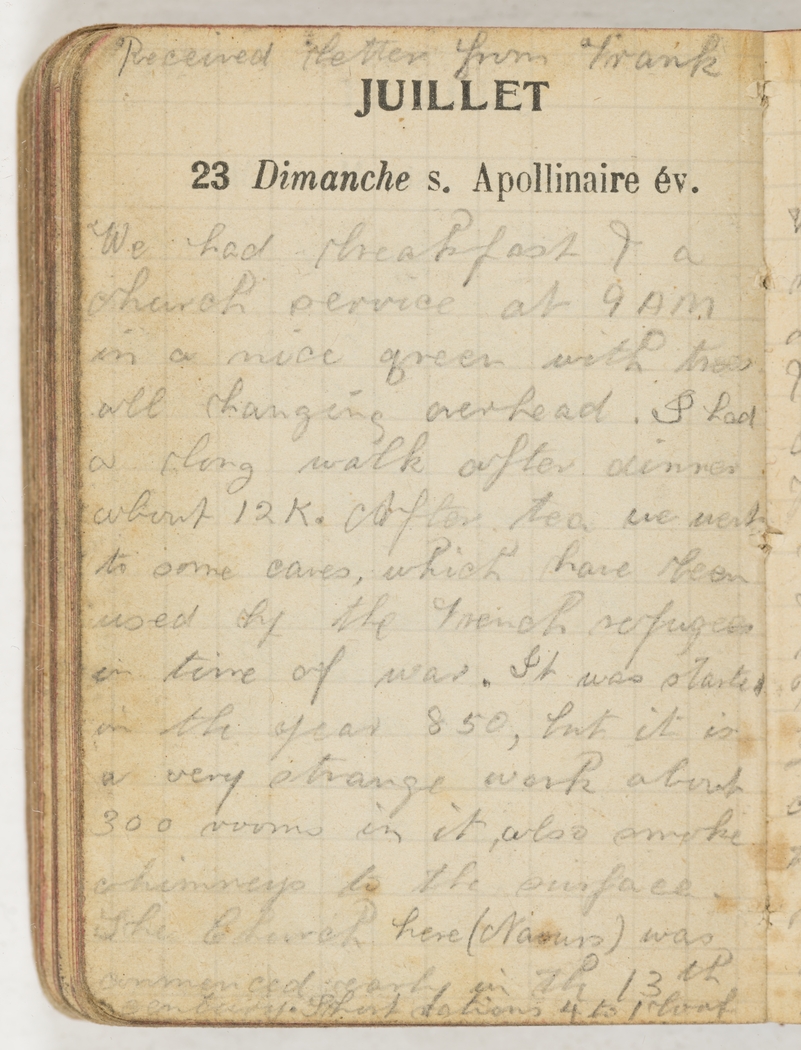 Received letter from Frank
JUILLET
23 Dimanche s. Apollinaire év.
We had breakfast & a
church service at 9 AM
in a nice green with trees
all hanging overhead. I had
a long walk after dinner
about 12 K. After tea we went
to some caves, which have been
used by the French refugees
in time of war. It was started
in the year 850, but it is
a very strange work about
300 rooms in it, also smoke
chimneys to the surface.
The Church here (Naours) was
commenced early in th 13th
century. Short rations 4 to 1 loaf